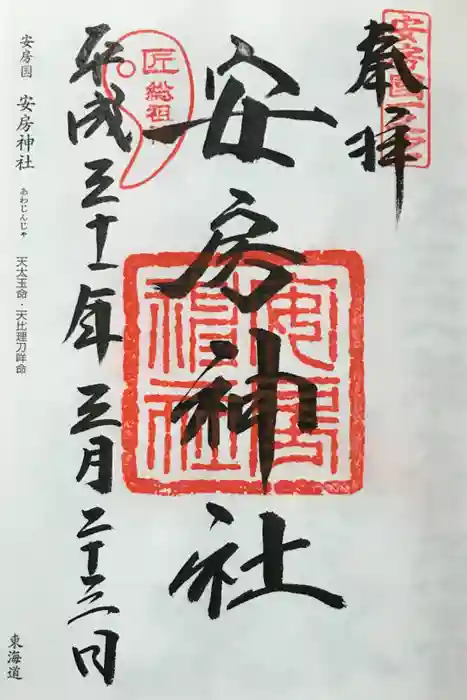 安房國
奉拝
安房神社
安房神社
匠総祖
平成三十一年三月二十三日
安房国 安房神社 あわじんじゃ 天太玉命・天比理刀咩命
東海道